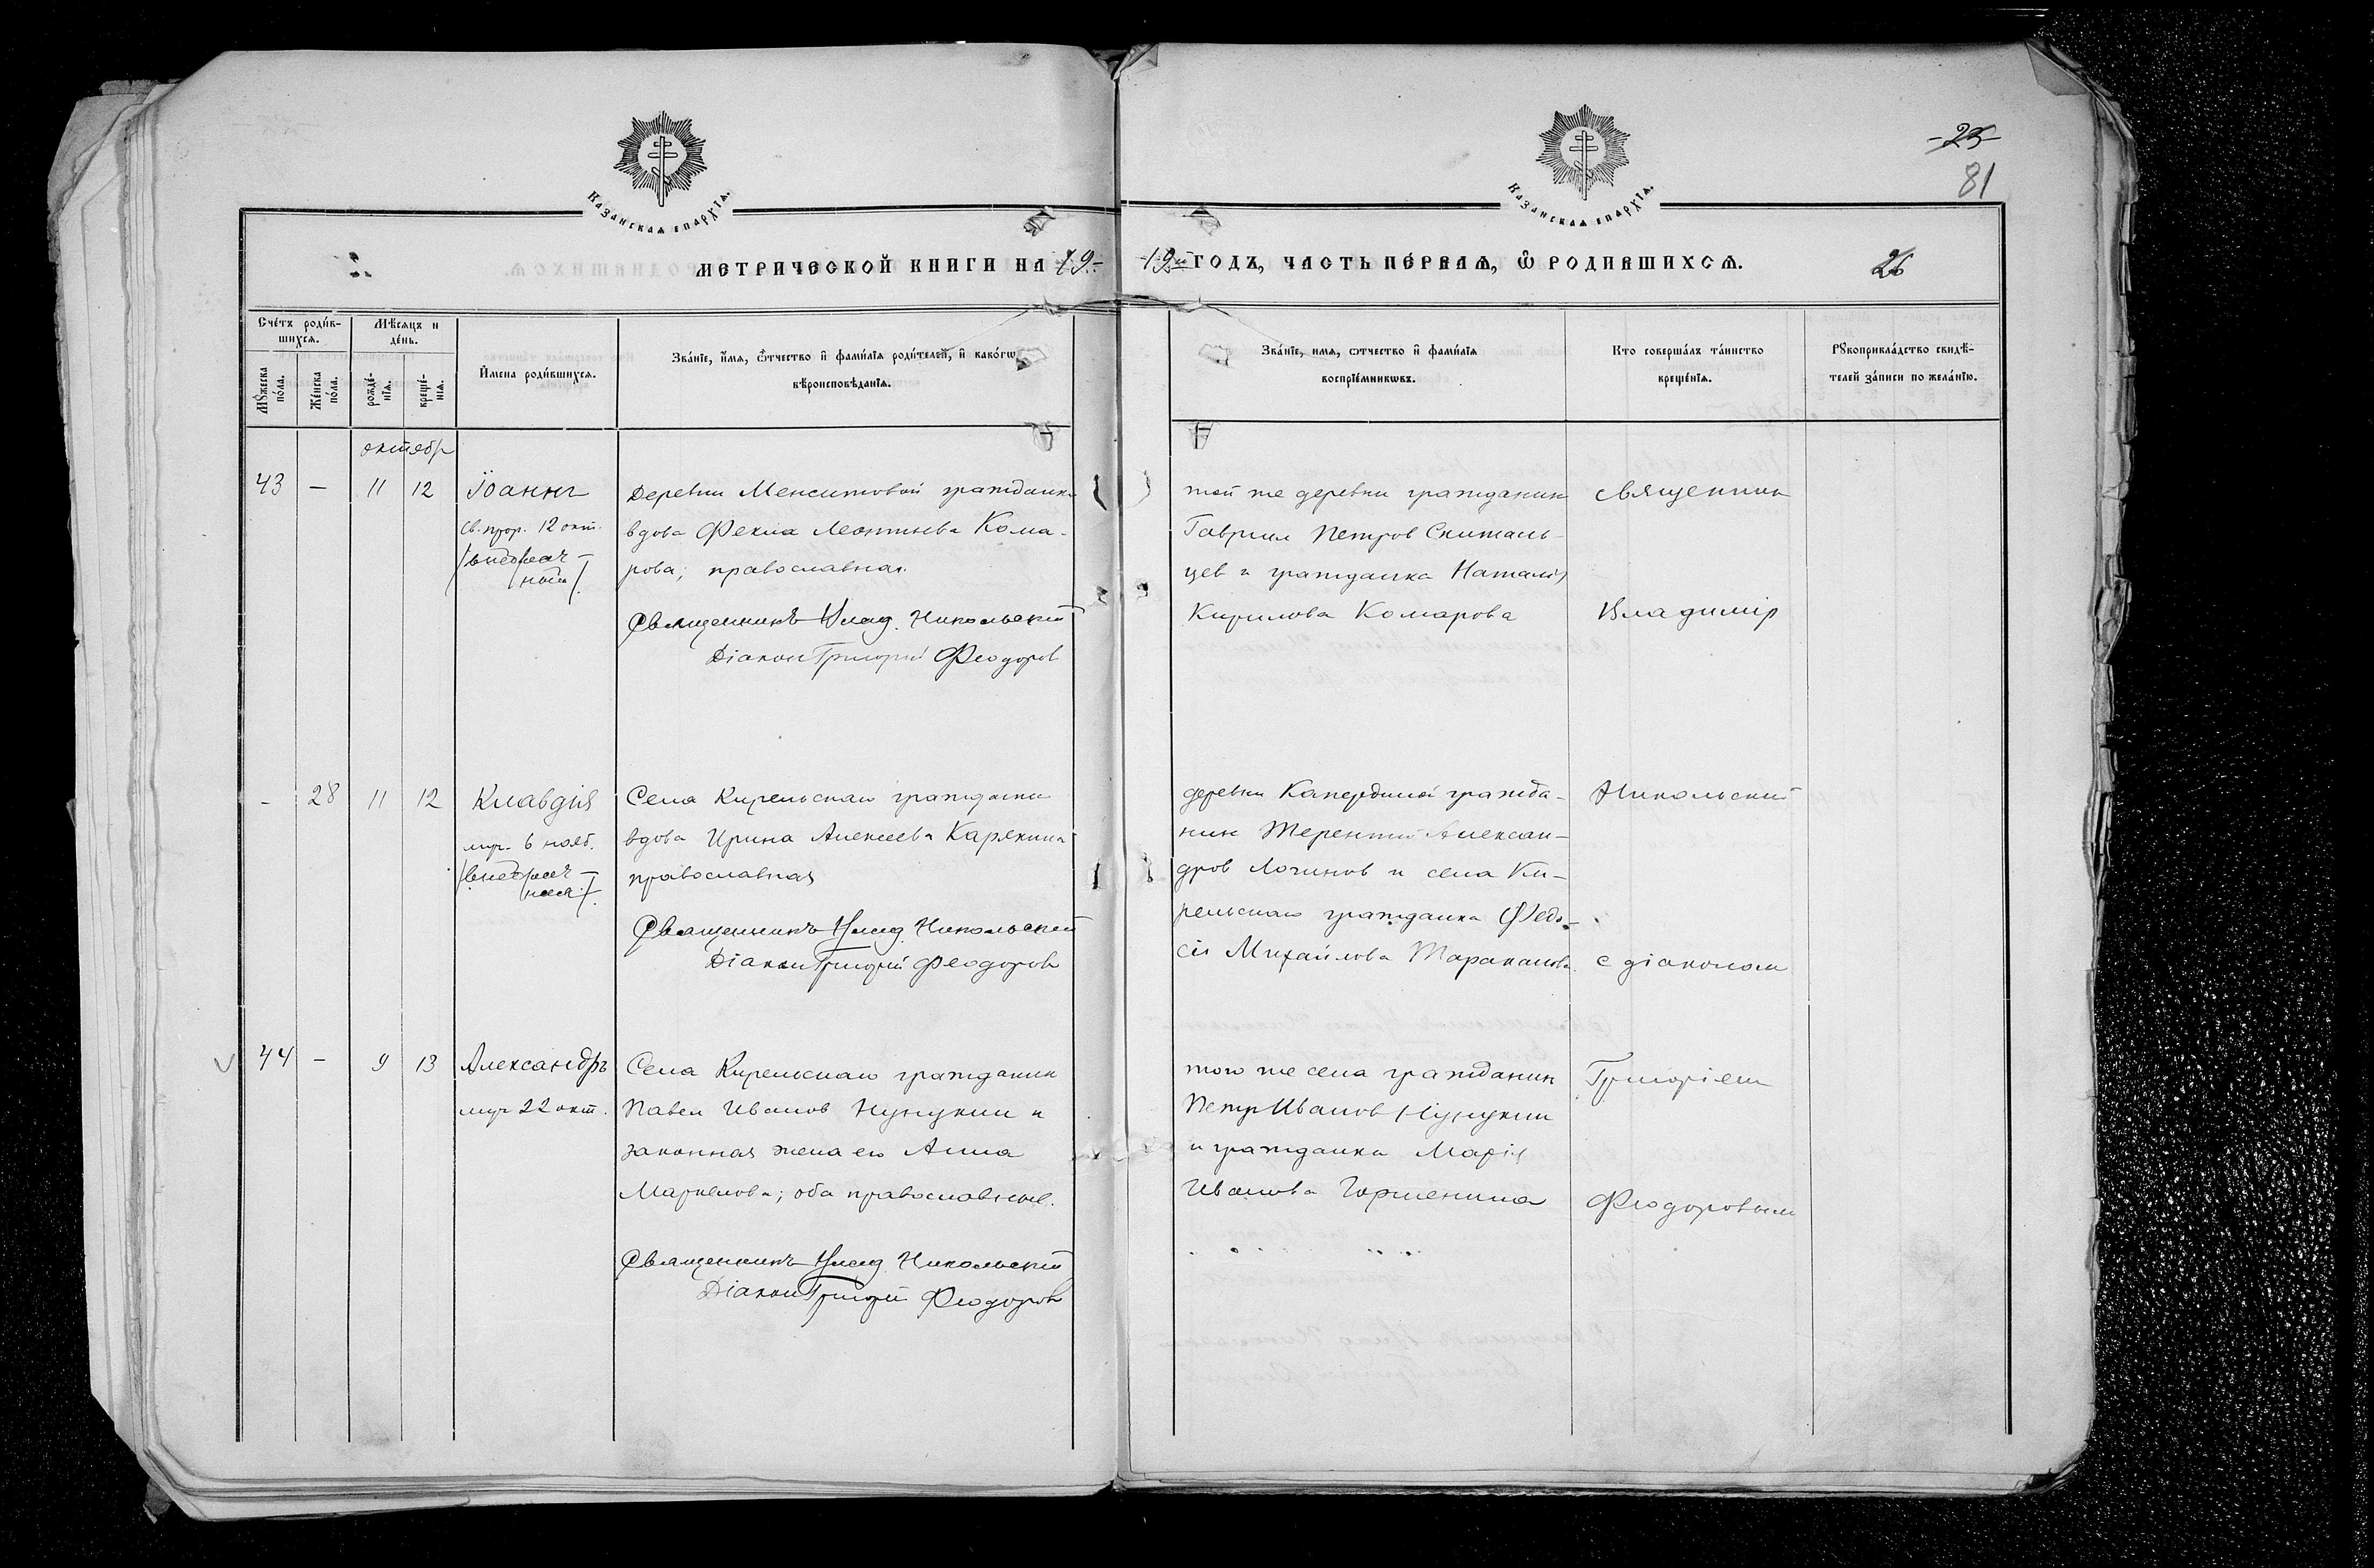 Казанская епархїя.
Казанская епархїя.
-25-
81
метрической книги на 19-
-19й годъ, часть пе́рвая, ѽ родившихся.
26
Сче́тъ роди́в-
шихся.
Мꙋжеска
по́ла.
Же́нска
по́ла.
Мѣ́сяцъ и
де́нь.
рожде́-
нїя.
креще́-
нїя.
И҆мена роди́вшихся.
Зва́нїе, и҆мя, ѻ҆́тчество и҆ фами́лїя роди́телей, и҆ како́гѡ
вѣроисповѣ́данїя.
Зва́нїе, имя, ѻтчество и҆ фами́лїя
воспрїе́мникѡвъ.
Кто соверша́лъ та́инство
креще́нїя.
Рꙋкоприкла́дство свидѣ́-
телей за́писи по жела́нїю.
октябр
43 — 11 12 Іоаннъ
св. прор. 12 окт.
/внебрач-
ный/.
Деревни Менситовой гражданка
вдова Фекла Леонтьева Кома-
рова; православная.
Священникъ Влад. Никольскій
Діакон Григорій Феодоров
той же деревни гражданин
Гавриил Петров Скиталь-
цев и гражданка Наталія
Кирилова Комарова
священник
Владимір
- 28 11 12 Клавдія
муч. 6 нояб.
/внебрач-
ная/.
Села Кирельскаго гражданка
вдова Ирина Алексеева Карякина
православная
Священникъ Влад. Никольскій
Діакон Григорій Феодоров
деревни Капердиной гражда-
нин Терентий Алексан-
дров Логинов и села Ки-
рельскаго гражданка Федо-
сія Михайлова Тараканова.
Никольский
с діаконом
44 — 9 13 Александръ
муч. 22 окт.
Села Кирельскаго гражданин
Павел Иванов Нунукин и
законная жена его Анна
Маркелова; оба православные.
Священникъ Влад. Никольскій
Діакон Григорій Феодоров
того же села гражданин
Петр Иванов Нунукин
и гражданка Марія
Иванова Горшенина
Григоріем
Феодоровым